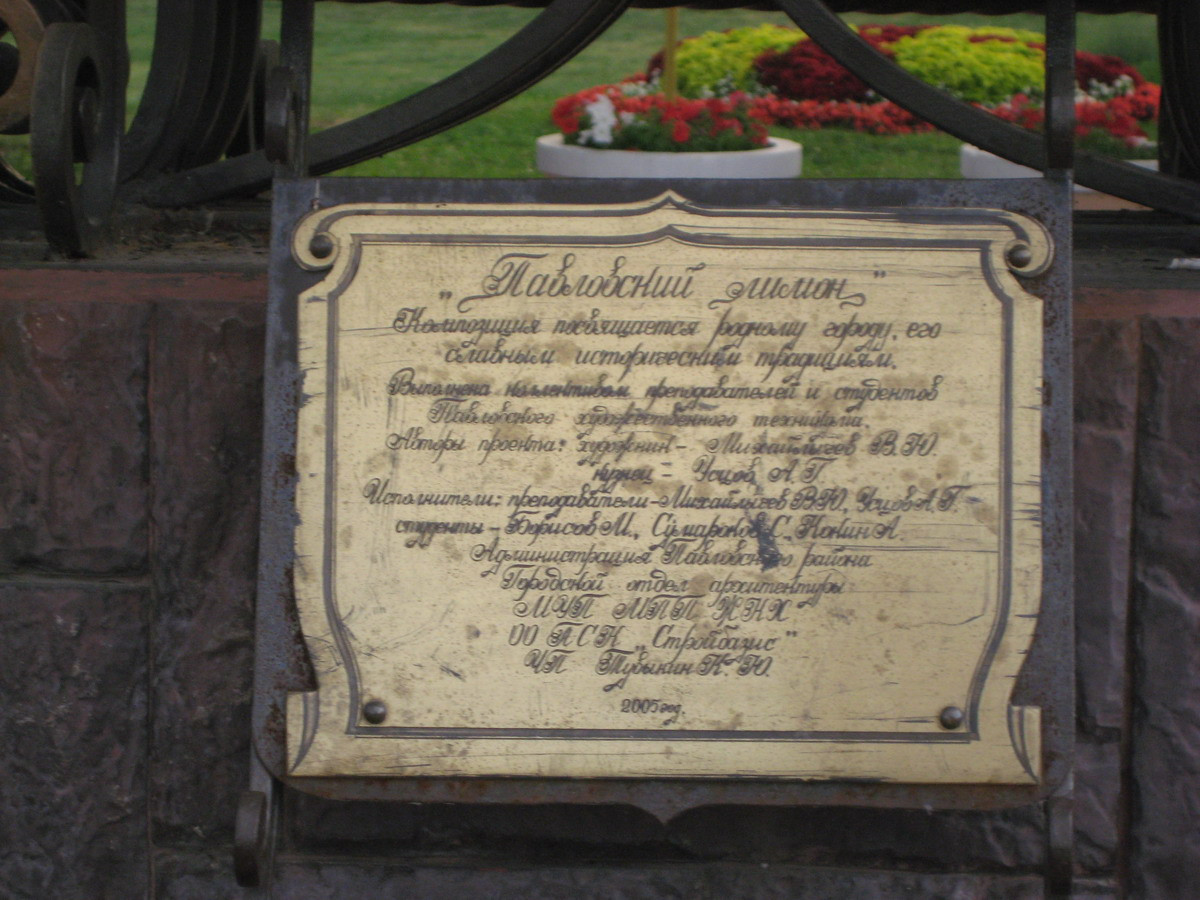 "Павловский лимон"
Композиция посвящается родному городу, его
славным историческим традициям.
Выполнена коллективом преподавателей и студентов
Павловского художественного техникума.
Авторы проекта: художник - Михайлычев В.Ю.
кузнец - Усцов А.Г.
Исполнители: преподаватели - Михайлычев В.Ю., Усцов А.Г.
студенты - Борисов М., Сумароков С., Конин А.
Администрация Павловского района
Городской отдел архитектуры
МУП МПП ЖКХ
ОО ПСК „Стройбазис"
ЧП Тувыкин К.Ю.
2005 год.